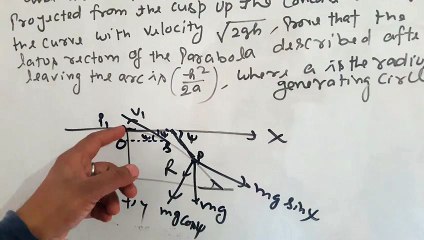 Projected from the cusp up the
the curve with velocity √2gh, Prove that the
latus rectom of the Parabola described afte
leaving the arc is (h²/2a), where a is the radiu
generating Circl
V₁
P₁
X
O
ψ
ψ
P
R
mg sinψ
mg
mg cosψ
+y